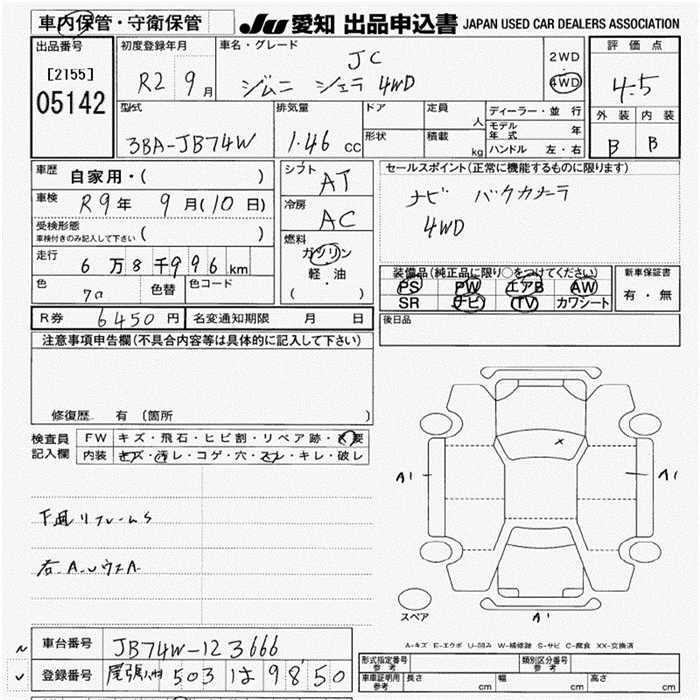 車内保管・守衛保管
JU 愛知 出品申込書 JAPAN USED CAR DEALERS ASSOCIATION
出品番号
[2155]
05142
初度登録年月
R2 9月
車名・グレード
JC
ジムニ シエラ 4WD
2WD
4WD
評価点
4.5
外装 内装
B B
型式
3BA-JB74W
排気量
1.46 cc
ドア
定員 人
形状
積載 kg
ディーラー・並行
モデル年式 年
ハンドル 左・右
車歴 自家用・( )
車検 R9年 9月(10日)
受検形態
車検付きのみ記入して下さい ( )
走行 6万8千996km
色
色替
色コード
シフト
AT
冷房
AC
燃料
ガソリン
軽・油
( )
セールスポイント(正常に機能するものに限ります)
ナビ バックカメラ
4WD
装備品(純正品に限り○をつけてください)
PS PW エアB AW
SR ナビ TV カワシート
新車保証書
有・無
後日品
R券 6450円 名変通知期限 月 日
注意事項申告欄(不具合内容等は具体的に記入して下さい)
修復歴 有 (箇所 )
検査員
記入欄
FW キズ・飛石・ヒビ割・リペア跡・X要
内装 キズ・汚レ・コゲ・穴・スレ・キレ・破レ
A1
A1
A1
スペア
A-キズ E-エクボ U-凹み W-補修跡 S-サビ C-腐食 XX-交換済
車台番号 JB74W-123666
登録番号 尾張小牧 503 は 9850
形式指定番号
参考
類別区分番号
参考
車庫証明用
参考
長さ cm 幅 cm 高さ cm